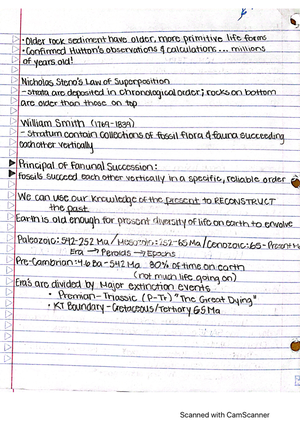 • Older rock sediment have older, more primitive life forms
• Confirmed Hutton's observations & calculations... millions
of years old!
Nicholas Steno's Law of Superposition
- strata are deposited in chronological order; rocks on bottom
are older than those on top
William Smith (1769-1839)
- Stratum contain collections of fossil flora & fauna succeeding
eachother vertically
Principal of Fanunal Succession:
fossils succeed each other vertically in a specific, reliable order
We can use our knowledge of the present to RECONSTRUCT
the past
Earth is old enough for present diversity of life on earth to envolve
Paleozoic: 542-252 Ma / Mesozoic: 252-65 Ma / Cenozoic: 65-Present Ma
Era → Periods → Epochs
Pre-Cambrian: 4.6 Ba - 542 Ma 80% of time on earth
(not much life going on)
Era's are divided by Major extinction events
• Premian-Triassic (P-Tr) "The Great Dying"
• KT Boundary - Cretaceous/Tertiary 65 Ma
Scanned with CamScanner